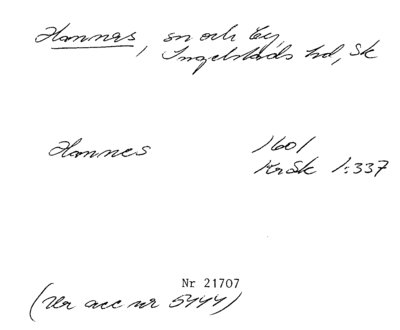 Hannas, sn och by,
Ingelstads hd, Sk
Hannes 1601
KrSk 1:337
Nr 21707
(Ur acc nr 5444)